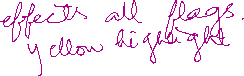 effects all flags.
yellow highlight